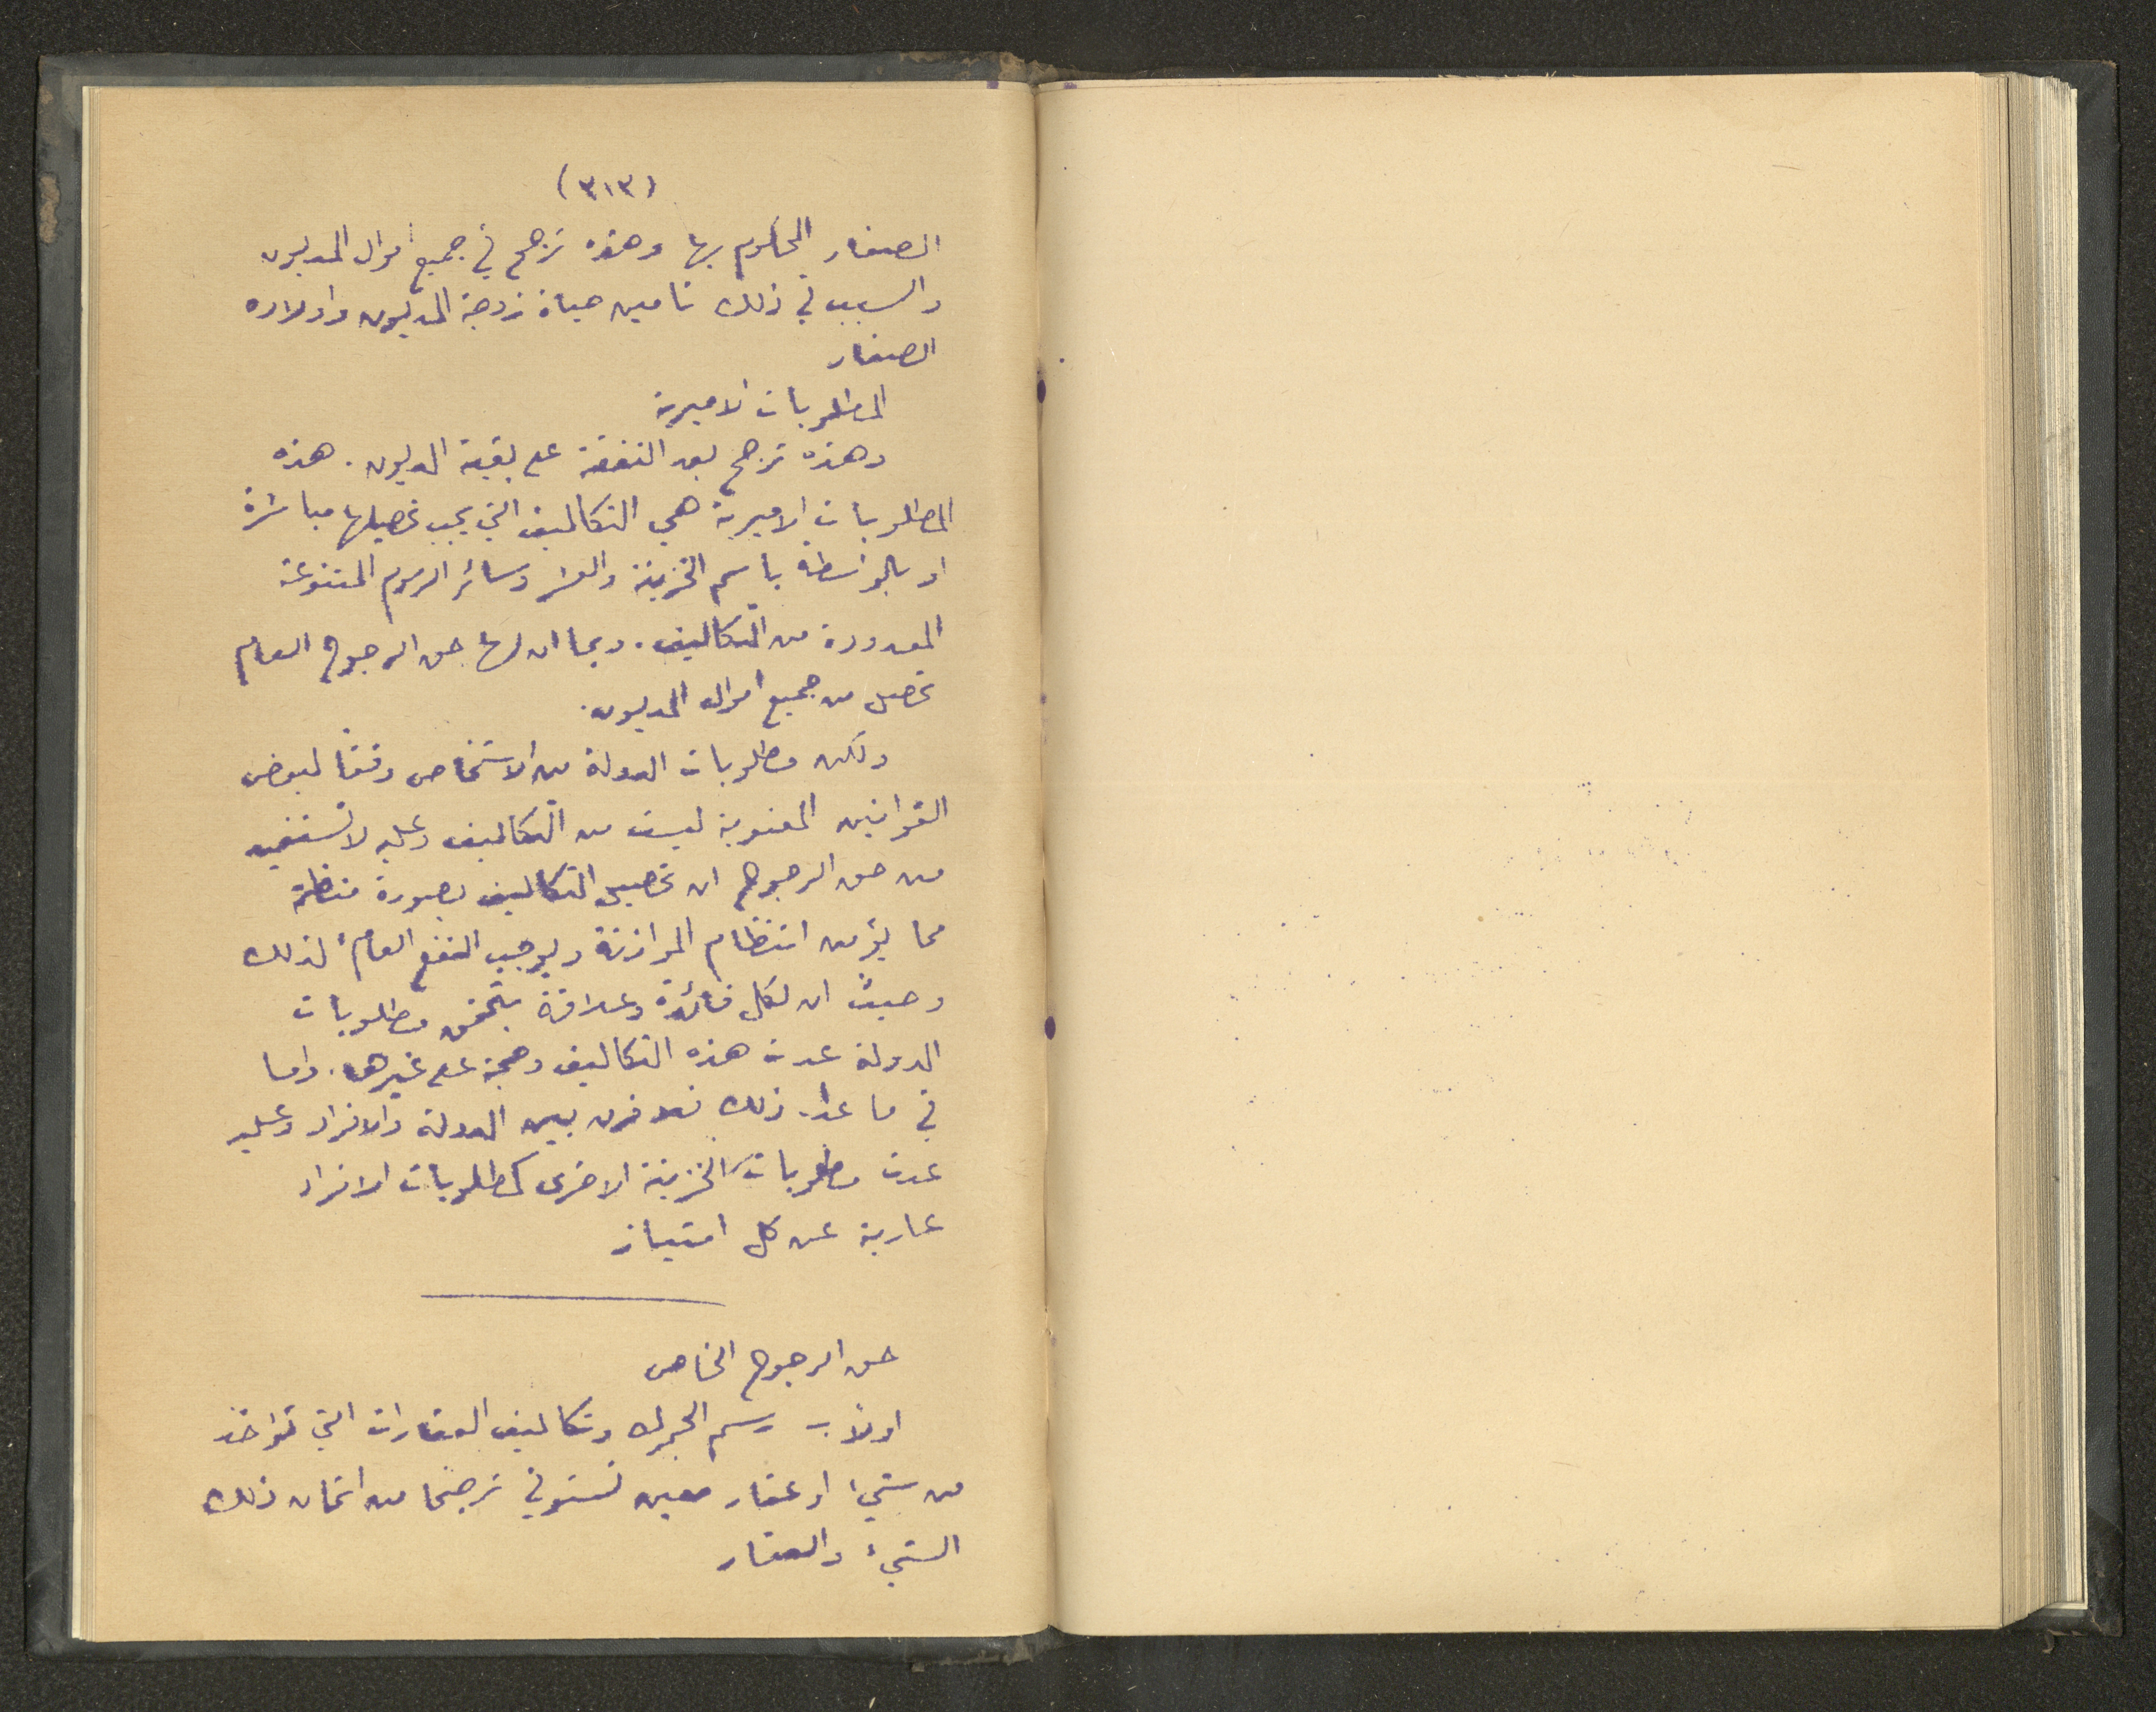 (٣١٣)
الصغار المحكوم بها وهذه ترجح في جميع اموال المديون
والسبب في ذلك تامين حياة زوجة المديون واولاده
الصغار
المطلوبات الاميرية
وهذه ترجح بعد النفقة على بقية الديون. هذه
المطلوبات الاميرية هي التكاليف التي يجب تحصيلها مباشرة
او بالواسطة باسم الخزينة والعشر وسائر الرسوم المتنوعة
المعدودة من التكاليف. وبما ان لها حق الرجوح العام
تحصل من جميع اموال المديون.
ولكن مطلوبات الدولة من الاشخاص وفقاً لبعض
القوانين المعنوية ليست من التكاليف وعليه لا تستفيد
من حق الرجوح ان تحصيل التكاليف بصورة منظمة
مما يؤمن انتظام الموازنة ويوجب النفع العام لذلك
وحيث ان لكل فائدة وعلاقة بتحقق مطلوبات
الدولة عدت هذه التكاليف رجحة على غيرها. واما
في ما عدا ذلك فلا فرق بين الدولة والافراد وعليه
عدت مطلوبات الخزينة الاخرى كمطلوبات الافراد
عارية عن كل امتياز
حق الرجوح الخاص
اولاً - رسم الجمرك وتكاليف العقارات التي تؤخذ
من شيء او عقار معين تستوفي ترجيحا من اثمان ذلك
الشيء والعقار